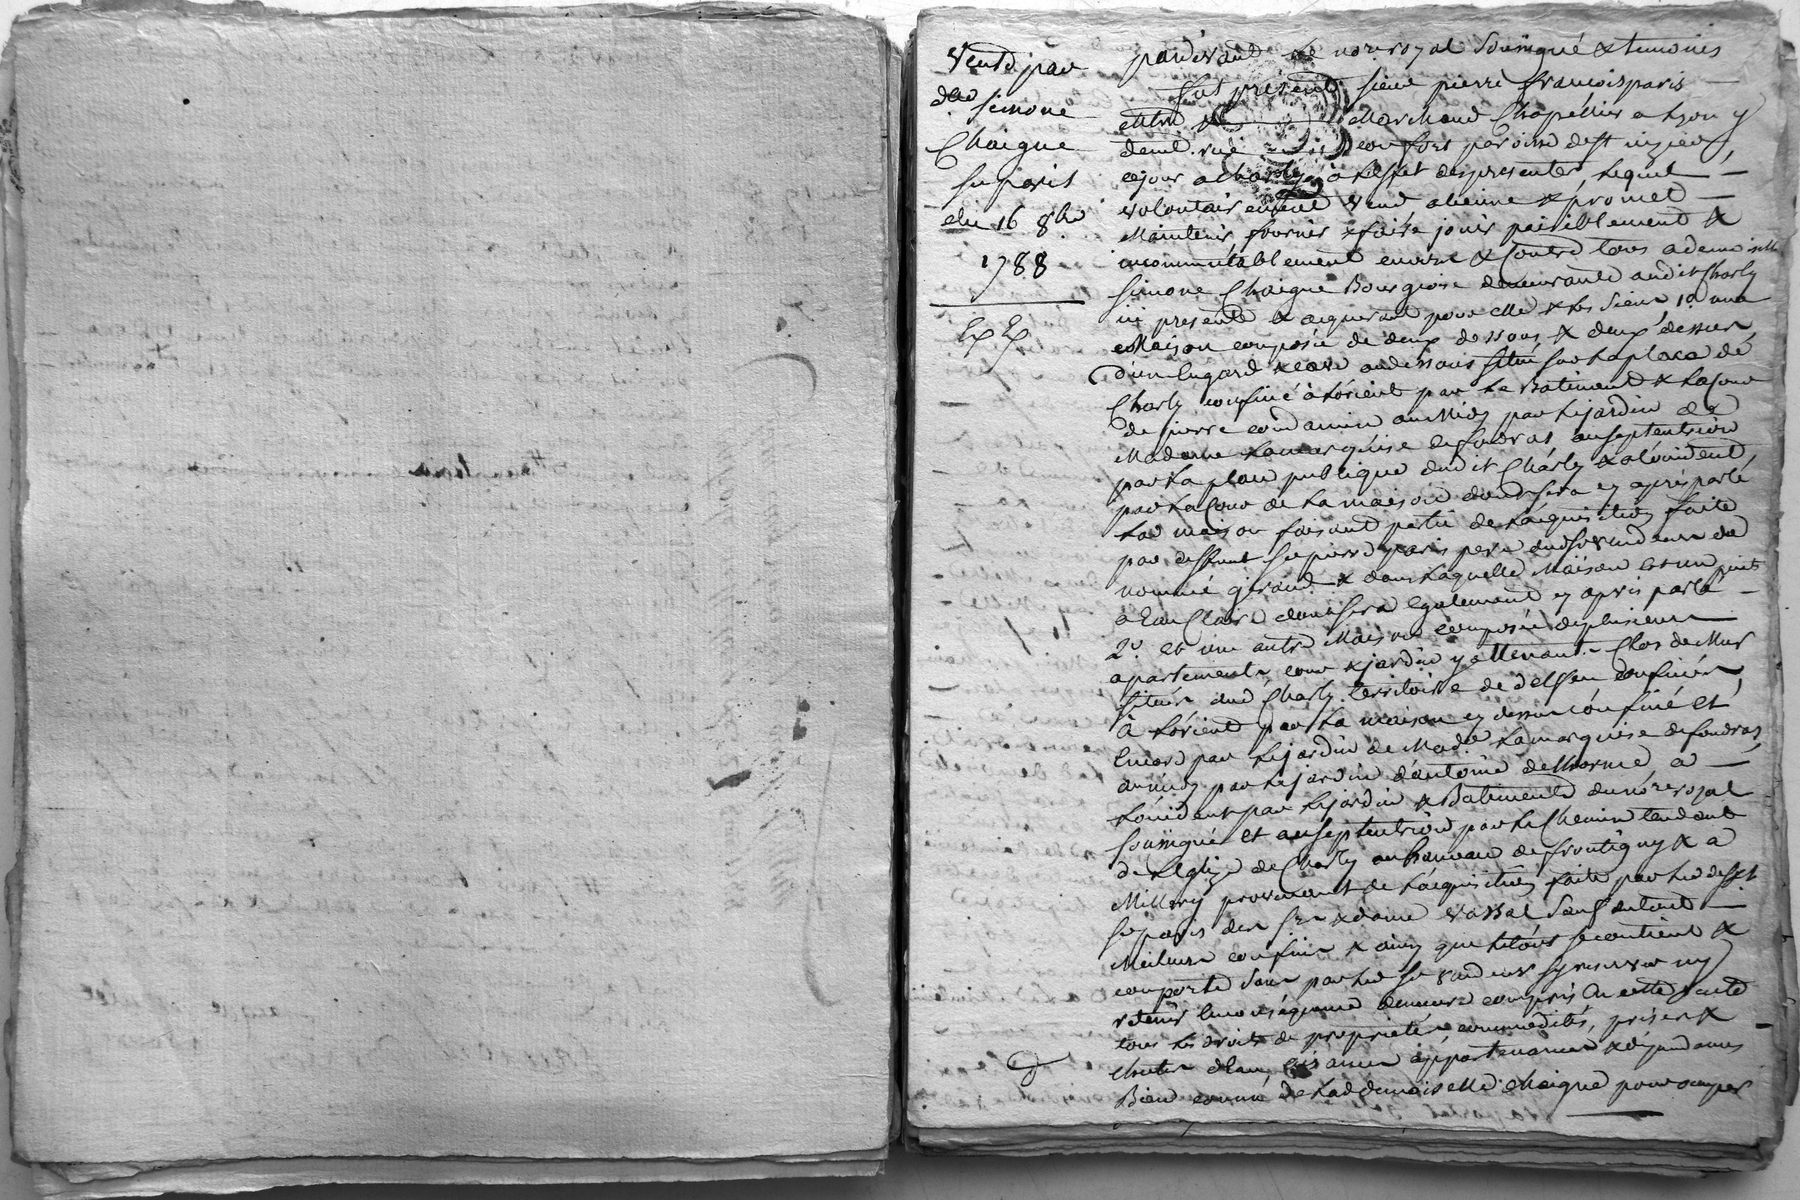 Vente par
dlle simone
Chaigne
sr paris
du 16 8bre
1788
pardevant le no.re royal soussigné & temoins
fut présent sieur pierre françois paris
Marchand Chapellier a Lyon y
demt. rue confort paroisse de st nizier
ce jour a Charly à l'effet des presentes, Lequel
volontairement vend aliene & promet
Maintenir fournir & faire jouir paisiblement &
incommutablement envers & Contre tous a demoiselle
simone Chaigne Bourgeoise demeurante audit Charly
ici presente & acquerant pour elle & les siens 1º une
Maison composée de deux dessous & deux dessus
d'un hugard & cave au dessous situé sur la place de
Charly confiné à l'orient par le Batiment & la cour
de pierre condamin au Midy par le jardin de
Madame La marquise de foudras au septentrion
par la place publique dudit Charly & a l'occident
par la Cour de la maison dont sera cy après parlé
La maison faisant partie de l'acquisition faite
par deffunt sr pierre paris pere dudt sr vendeur du
nommé giraud & dans laquelle Maison est un puits
a Eau Claire dont sera Egalement cy apres parlé
2º. et une autre Maison composée de plusieurs
apartements cour & jardin y attenant Clos de Mur
situés aud Charly territoire de confinés
à L'orient par la maison cy dessus confiné et
Encore par le jardin de Made La marquise de foudras
au midy par le jardin d'antoine delhorme a
L'occident par le jardin & Batiment du no.re royal
soussigné et au septentrion par le Chemin tendant
de L'eglize de Charly au hameau de frontigny & a
Millery provenant de l'acquisition faite par led deffunt
sr paris des sr & dame vassal sauf autres
Meilleurs confins & ainsy que le tout se contient &
comporte sans par led sr vendeur s'y reserver ny
retenir
tous les droits de proprieté commodités, prises &
d'eau, aisances appartenances & dependances
Bien connu de lad demoiselle Chaigne pour